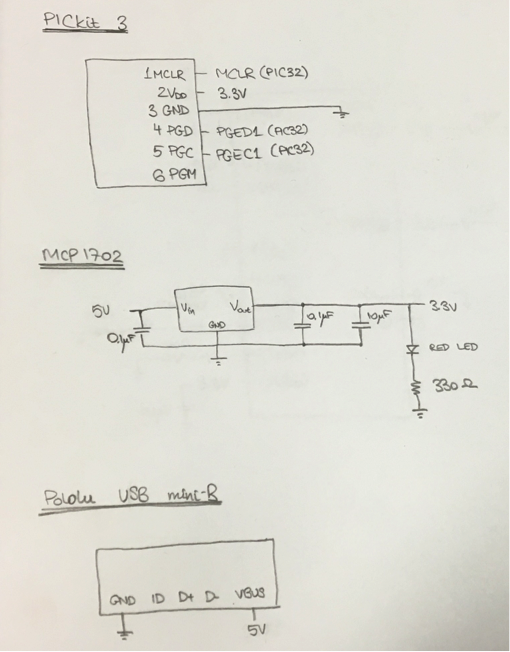 PICkit 3
1 MCLR MCLR (PIC32)
2 VDD 3.3V
3 GND
4 PGD PGED1 (PIC32)
5 PGC PGEC1 (PIC32)
6 PGM
MCP1702
5V Vin Vout 0.1µF 10µF 3.3V
GND
0.1µF
RED LED
330Ω
Pololu USB mini-B
GND ID D+ D- VBUS
5V